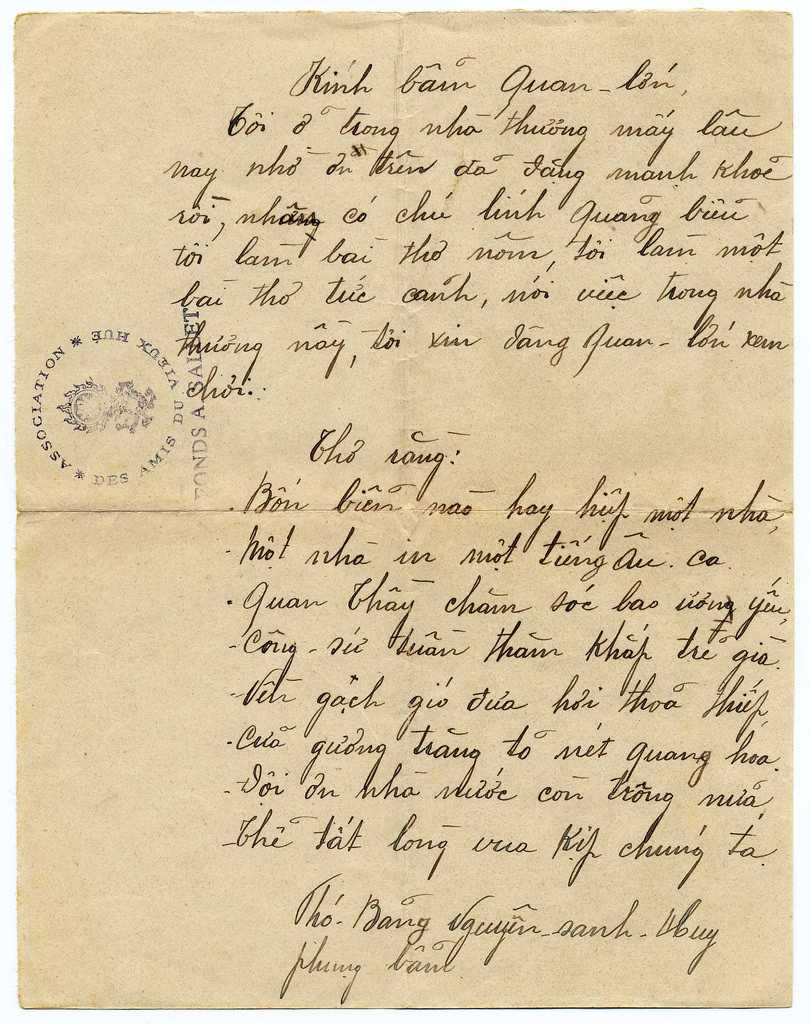 Kính bẩm Quan-lớn,
Tôi ở trong nhà thương mấy lâu
nay nhờ ơn trên đã đặng mạnh khoẻ
rồi, nhưng có chú lính Quảng biểu
tôi làm bài thơ nôm, tôi làm một
bài thơ tức cảnh, nói việc trong nhà
thương nầy, tôi xin dâng Quan-lớn xem
chơi.:
Thơ rằng:
- Bốn biển nào hay hiệp một nhà,
- Một nhà in một tiếng Âu. ca.
- Quan Thầy chăm sóc bao ương yếu,
- Công-sứ tuần thăm khắp trẻ già.
- Nền gạch gió đưa hơi thoả thiếp,
- Cửa gương trăng tỏ nét quang hoa.
- Đội ơn nhà nước còn trông nữa,
- Thế tất lòng vua kịp chúng ta.
Thơ-Bang Nguyễn-sanh-Huy
phụng bẩm
ASSOCIATION * DES AMIS DU VIEUX HUÉ *
FONDS A. SALLET